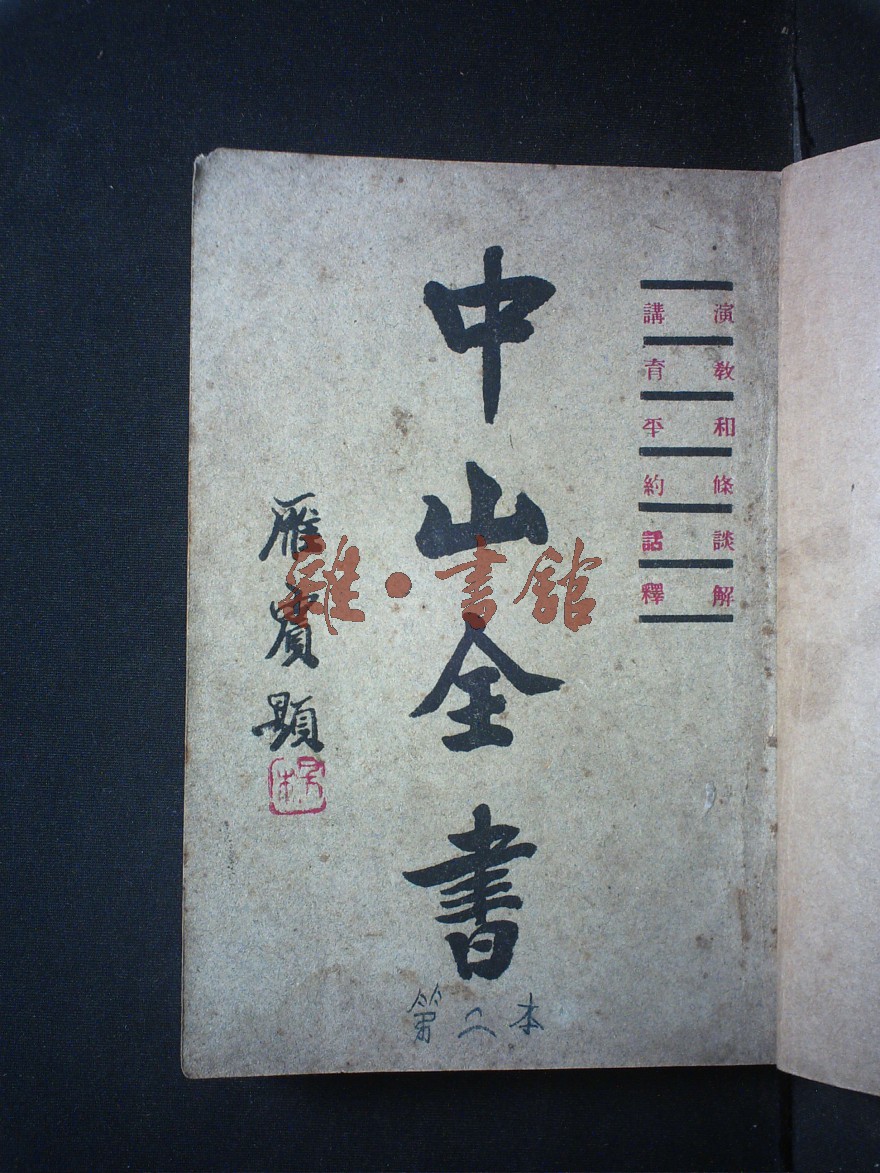 演講
教育
和平
條約
談話
解釋
中山全書
雁賓題
第二本
雜·書館